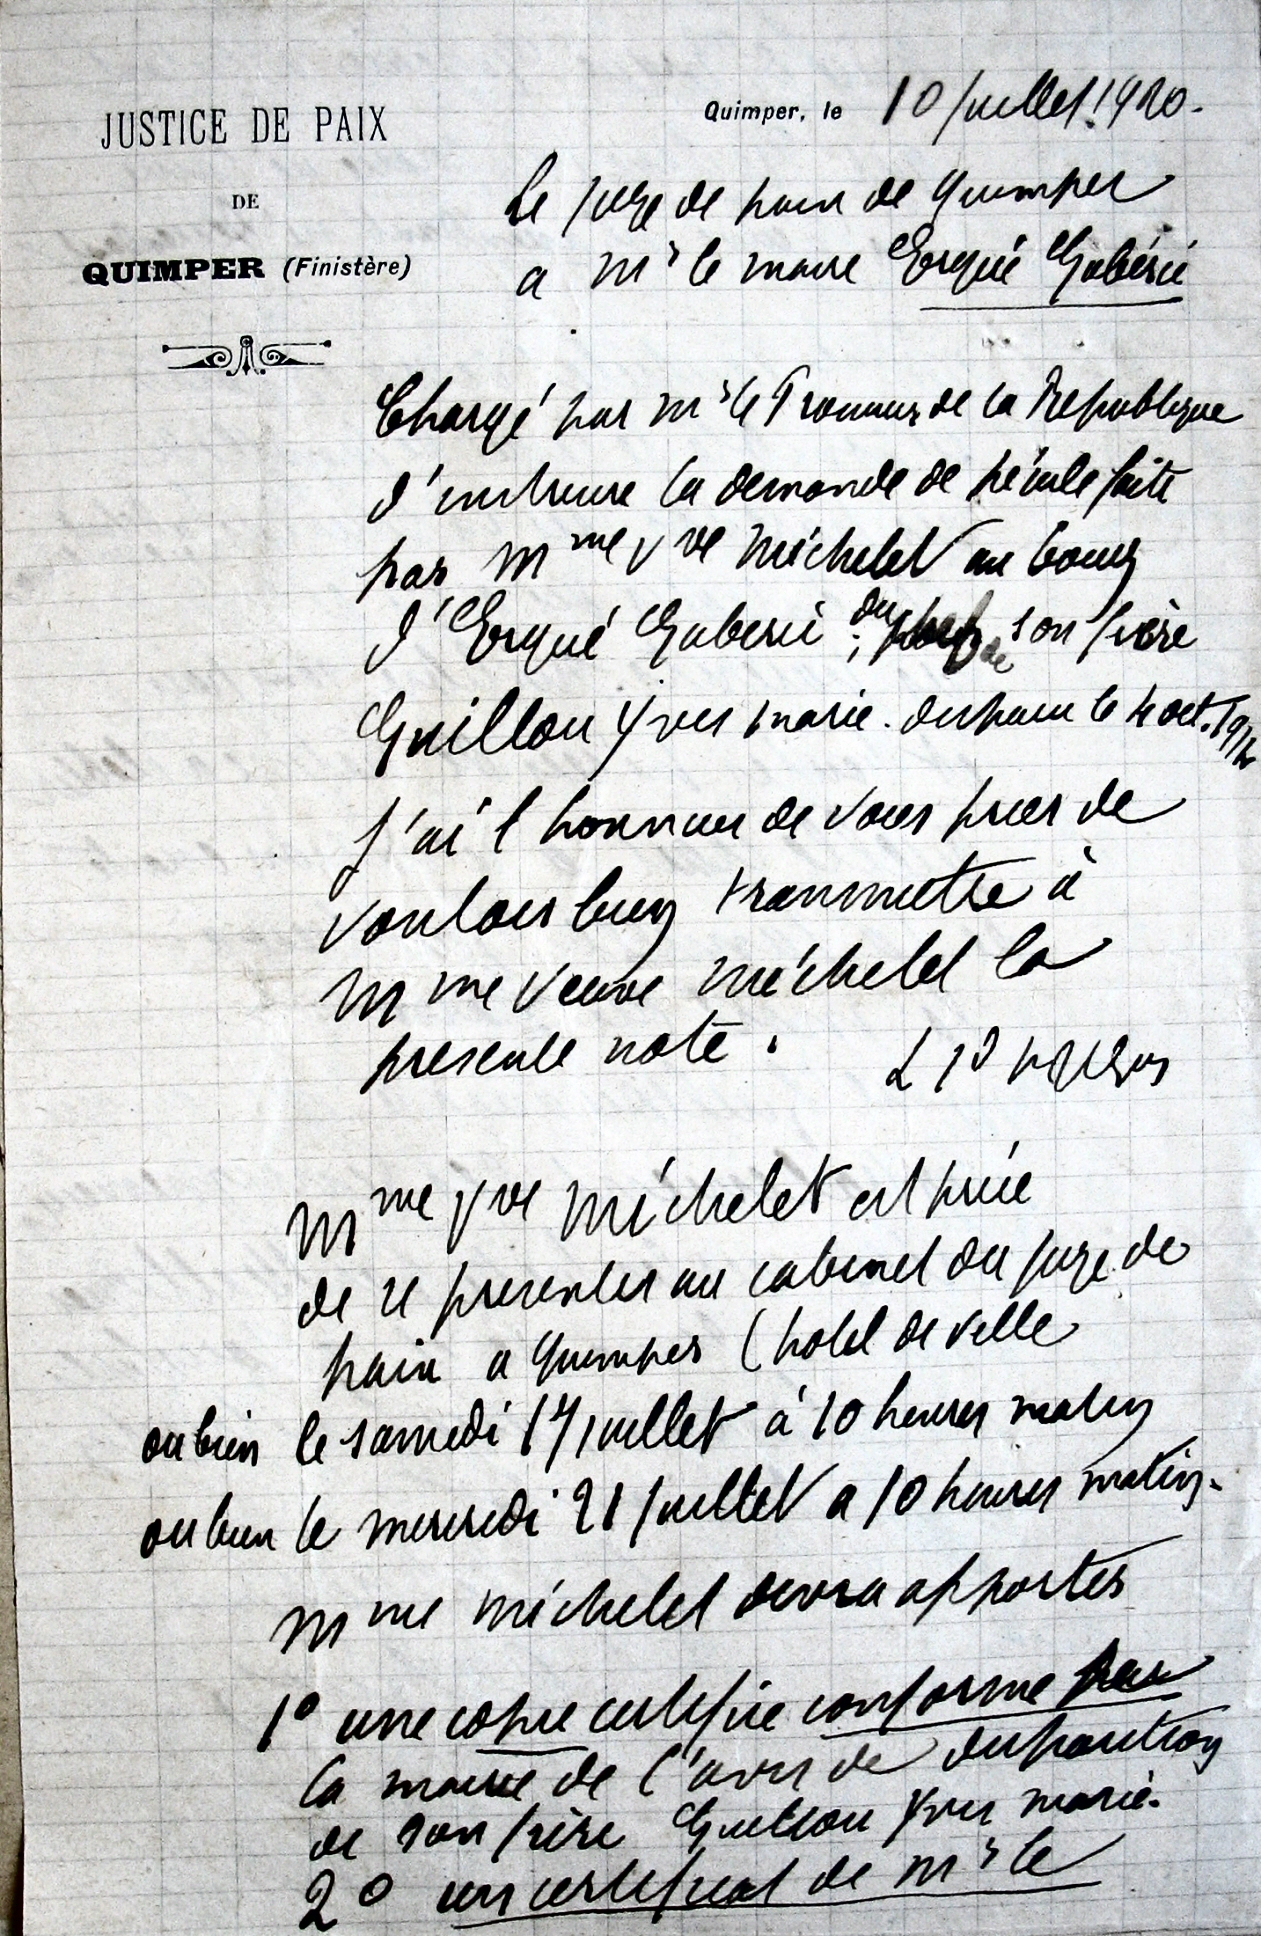 JUSTICE DE PAIX
DE
QUIMPER (Finistère)
Quimper, le 10 juillet 1920.
Le juge de paix de Quimper
a Mr le maire Ergué Gabéric
Chargé par Mr le Procureur de la Republique
d'instruire la demande de pécule faite
par Mme Vve Michelet au bourg
d'Ergué Gaberic du chef de son frère
Guillou Yves Marie. disparu le 4 oct. 1914
j'ai l'honneur de vous prier de
vouloir bien transmettre à
Mme Veuve Michelet la
presente note.
Mme Vve Michelet est priée
de se presenter au cabinet du juge de
paix a Quimper (hotel de ville
ou bien le samedi 17 juillet à 10 heures matin
ou bien le mercredi 21 juillet a 10 heures matin.
Mme Michelet devra apporter
1º une copie certifiée conforme par
la mairie de l'avis de disparition
de son frère Guillou Yves Marie.
2º un certificat de Mr le